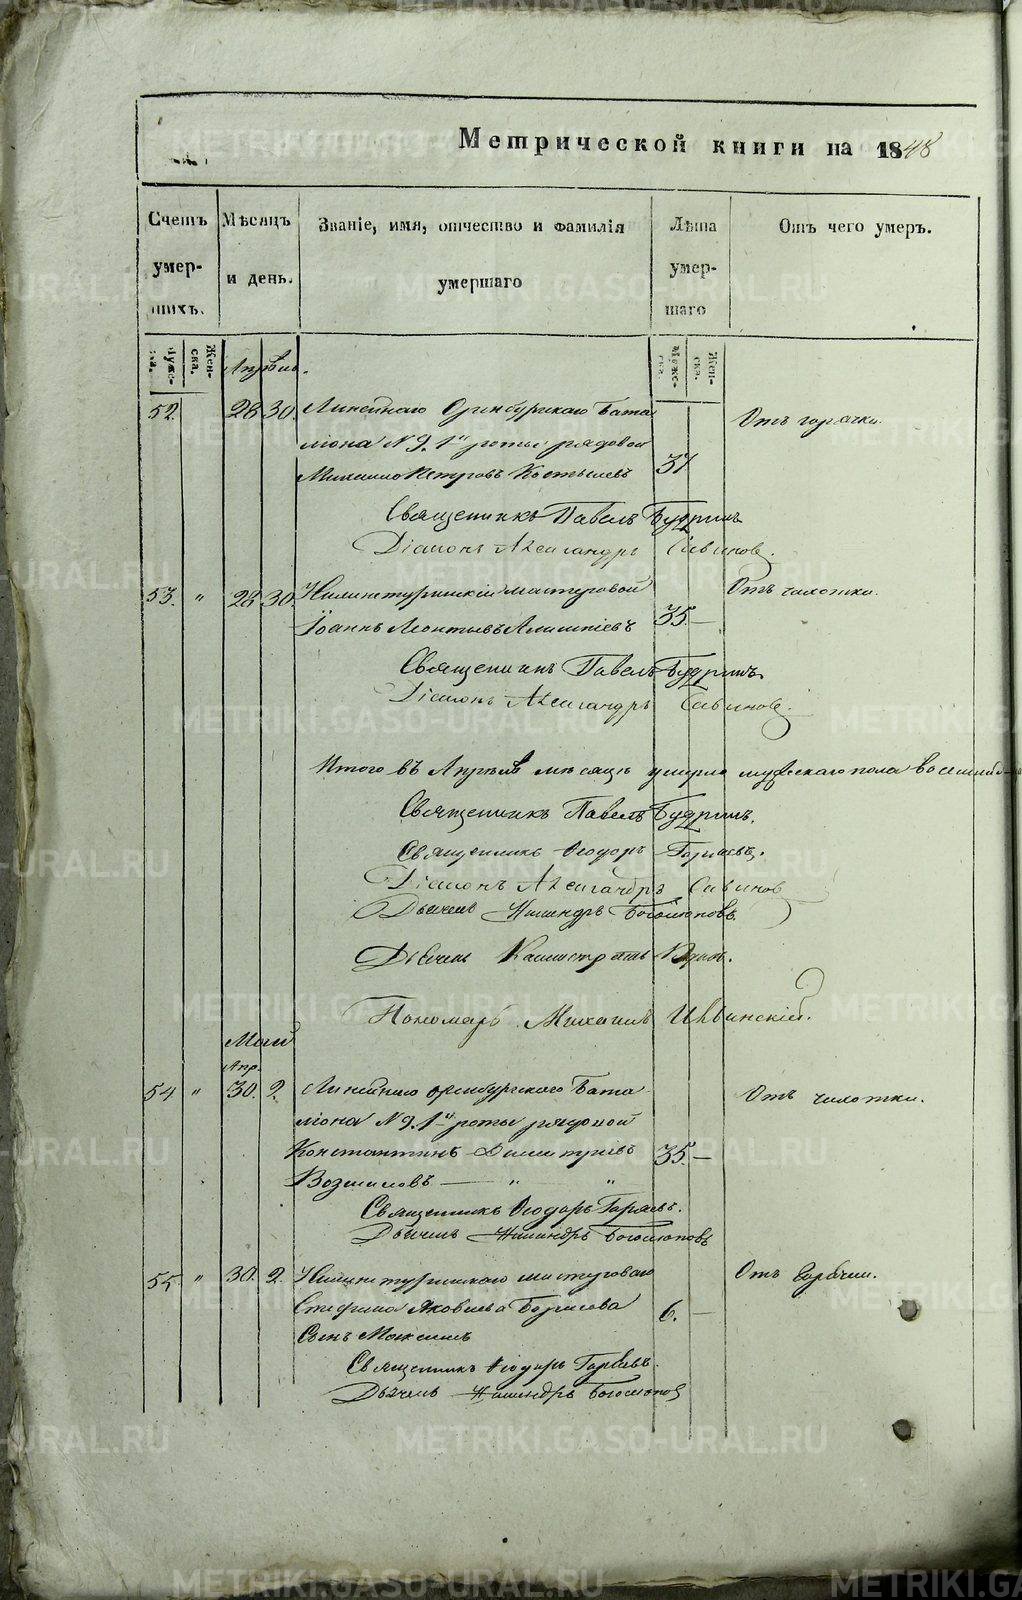 Метрической книги на 1848
Счетъ умер- шихъ.
Мѣсяцъ и день.
Званіе, имя, отчество и фамилія умершаго
Лѣта умер- шаго
Отъ чего умеръ.
Муже- ска.
Жен- ска.
Апрѣль.
Муже- ска.
Жен- ска.
52. 28 30. Линейнаго Оренбургскаго Бата
ліона № 9. 1й роты рядовой
Михаило Петровъ Костылевъ 37
Отъ горячки.
Священникъ Павелъ Будринъ
Діаконъ Александръ Савинов.
53. " 28 30. мастеровой
Іоаннъ Леонтьевъ 35. —
Отъ чахотки.
Священникъ Павелъ Будринъ.
Діаконъ Александръ Савинов.
Итого въ Апрѣлѣ мѣсяцѣ умерло мужескаго пола
Священникъ Павелъ Будринъ.
Священникъ Ѳеодоръ Горяевъ.
Діаконъ Александръ Савинов
Дьячекъ Никандръ Боголюповъ.
Дьячекъ Калистратъ
Пономарь Михаилъ Ивинскій.
Май
Апр.
54 " 30. 2. Линейнаго оренбургскаго Бата
ліона № 9. 1й роты рядовой
Константинъ Димитріевъ 35. —
— " "
Отъ чахотки.
Священникъ Ѳеодоръ Горяевъ.
Дьячекъ Никандръ Боголюповъ
55. " 30. 2. мастероваго
Стефана Яковлева Борисова 6. —
Сынъ Максимъ
Отъ горячки.
Священникъ Ѳеодоръ Горяевъ.
Дьячекъ Никандръ Боголюпов
METRIKI.GASO-URAL.RU